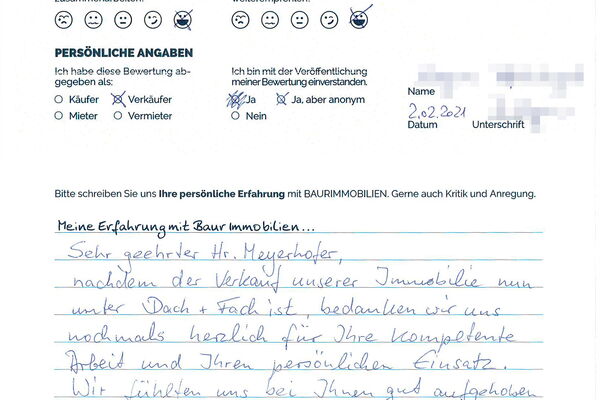 PERSÖNLICHE ANGABEN
Ich habe diese Bewertung ab-
gegeben als:
Käufer Verkäufer
Mieter Vermieter
Ich bin mit der Veröffentlichung
meiner Bewertung einverstanden.
Ja Ja, aber anonym
Nein
Name
2.02.2021
Datum Unterschrift
Bitte schreiben Sie uns Ihre persönliche Erfahrung mit BAURIMMOBILIEN. Gerne auch Kritik und Anregung.
Meine Erfahrung mit Baur Immobilien...
Sehr geehrter Hr. Meyerhofer,
nachdem der Verkauf unserer Immobilie nun
unter Dach + Fach ist, bedanken wir uns
nochmals herzlich für Ihre kompetente
Arbeit und Ihren persönlichen Einsatz.
Wir fühlten uns bei Ihnen gut aufgehoben